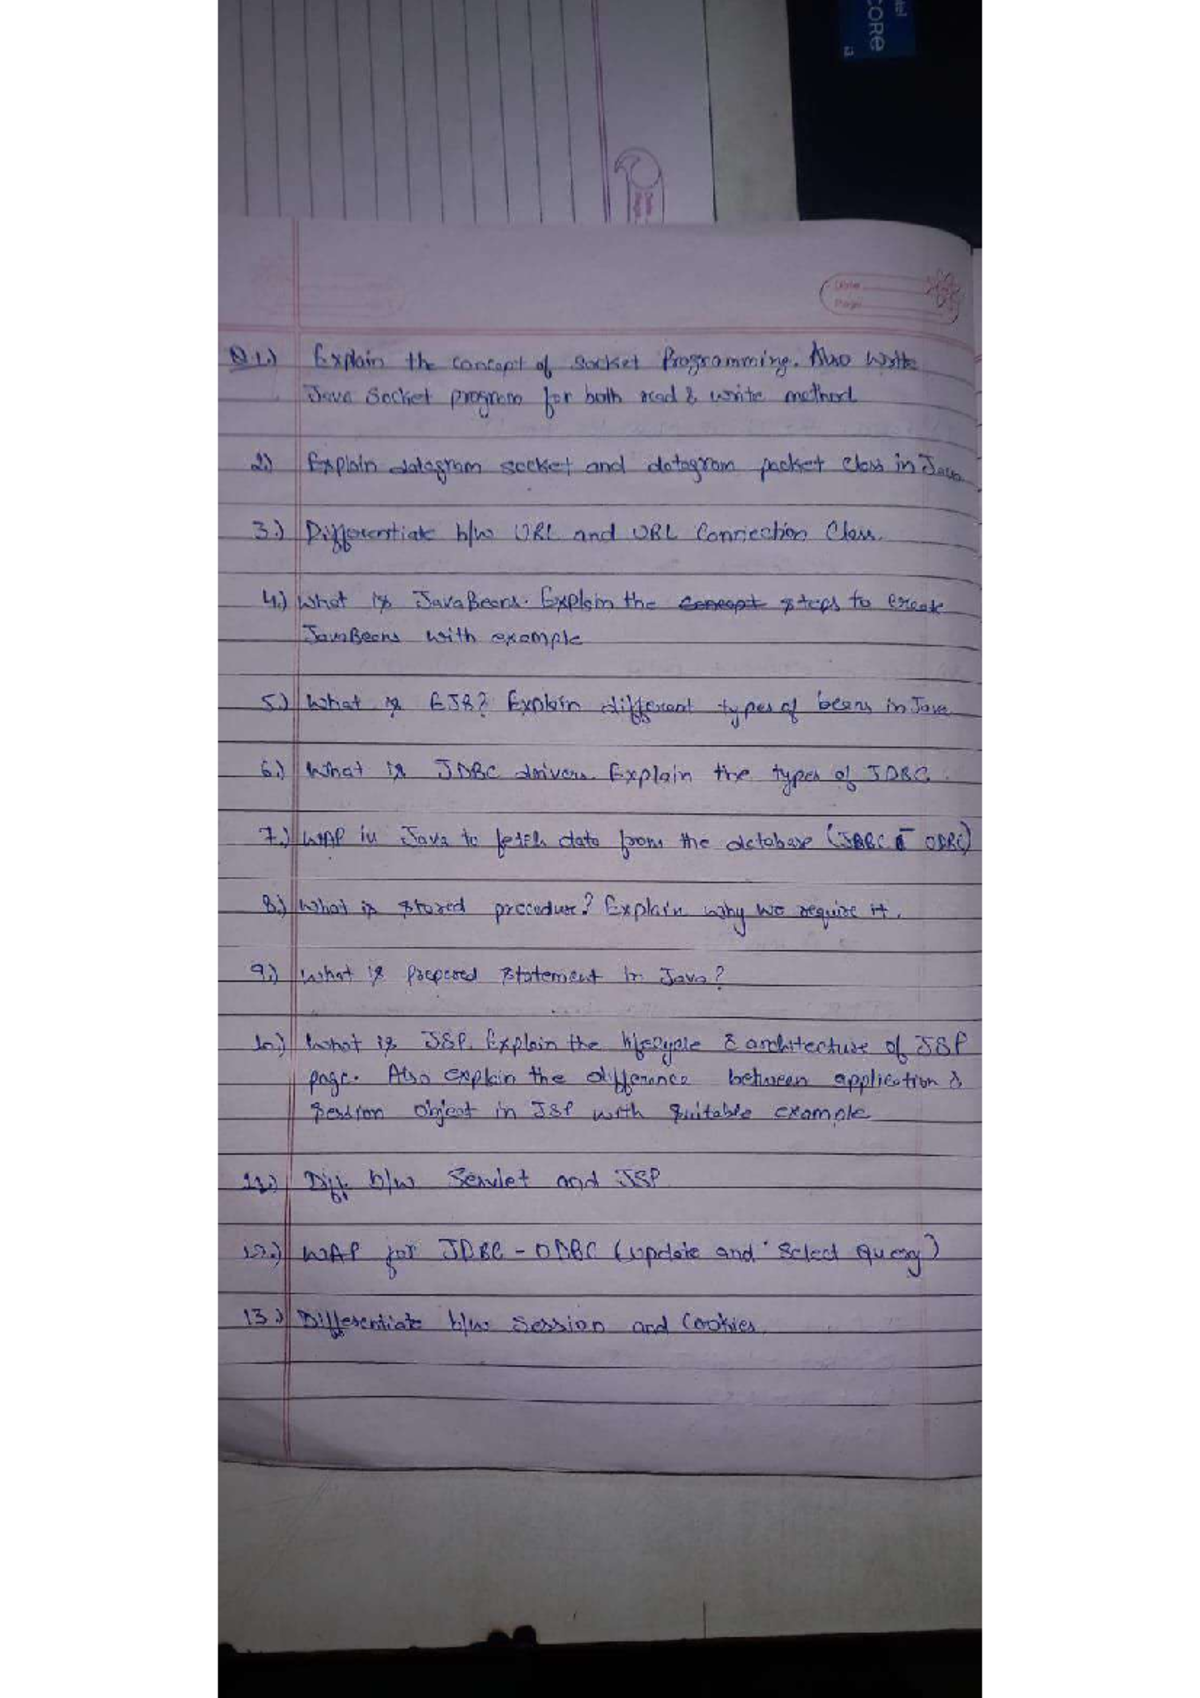 Q1.) Explain the concept of Socket Programming. Also Write
Java Socket program for both read & write method
2.) Explain datagram socket and datagram packet class in Java
3.) Differentiate b/w URL and URL Connection Class.
4.) What is JavaBeans. Explain the concept steps to create
JavaBeans with example
5.) What is EJB? Explain different types of beans in Java
6.) What is JDBC drivers. Explain the types of JDBC.
7.) WAP in Java to fetch data from the database (JDBC - ODBC)
8.) What is stored procedure? Explain why we require it.
9.) What is Prepared Statement in Java?
10.) What is JSP. Explain the lifecycle & architecture of JSP
page. Also explain the difference between application &
Session object in JSP with suitable example
11.) Diff. b/w Servlet and JSP
12.) WAP for JDBC - ODBC (update and Select Query)
13.) Differentiate b/w Session and Cookies.
Date
Page
CORE